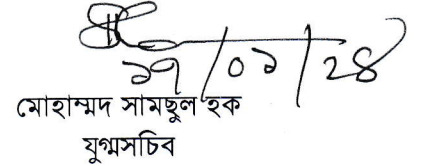 ২৭/০১/২৪
মোহাম্মদ সামছুল হক
যুগ্মসচিব